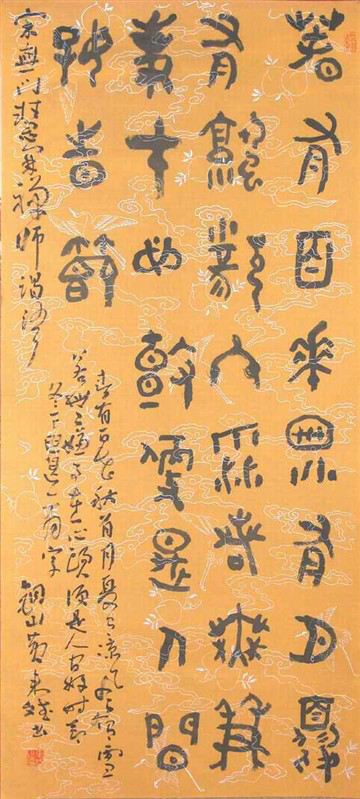 春有百花秋有月夏
有涼風冬雪若無閒
事在心頭便是人間
好時節
宋無門慧開禪師
春有百花秋有月夏有涼風冬有雪
若無閒事在心頭便是人間好時節
冬下一有字
山黃東書